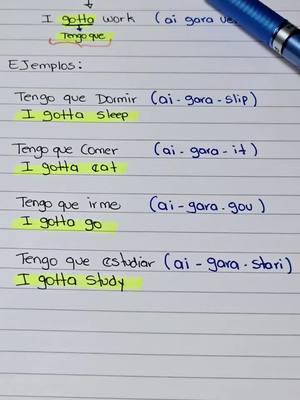 I gotta work (ai gara
Tengo que
Ejemplos:
Tengo que Dormir (ai-gara-slip)
I gotta sleep
Tengo que Comer (ai-gara-it)
I gotta eat
Tengo que irme (ai-gara-gou)
I gotta go
Tengo que estudiar (ai-gara-stari)
I gotta study